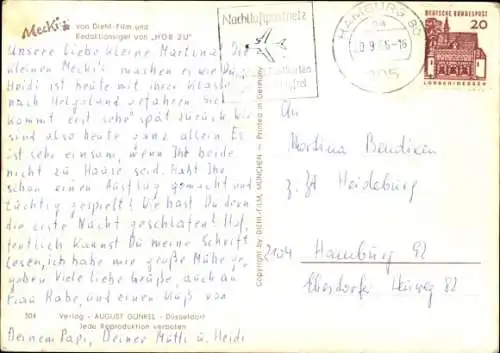 Mecki's von Diehl-Film und
Redaktionsigel von „HÖR ZU"
Unsere liebe kleine Martina! Die
kleinen Mecki's machen es wie Du.
Heidi ist heute mit ihrer Klasse
nach Helgoland gefahren. Sie
kommt erst sehr spät zurück. Wir
sind also heute ganz allein. Es
ist sehr einsam, wenn Ihr beide
nicht zu Hause seid. Habt Ihr
schon einen Ausflug gemacht und
tüchtig gespielt? Wie hast Du denn
die erste Nacht geschlafen? Hof-
fentlich kannst Du meine Schrift
lesen, ich habe mir große Mühe ge-
geben. Viele liebe Grüße, auch an
Frau Rabe, und einen Kuß von
304 Verlag - AUGUST GUNKEL - Düsseldorf
Jede Reproduktion verboten
Deinem Papi, Deiner Mutti u. Heidi
Copyright by DIEHL-FILM, MÜNCHEN — Printed in Germany
Nachtluftpostnetz
HAMBURG
DEUTSCHE BUNDESPOST
20
LORSCH/HESSEN
An
Martina Bendixen
z. Zt. Heideburg
2104 Hamburg 92
Ehestorfer Heuweg 82